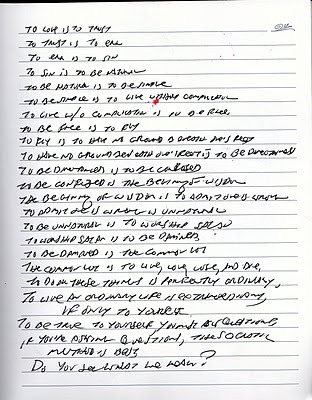 TO LOVE IS TO TRUST
TO TRUST IS TO ERR
TO ERR IS TO SIN
TO SIN IS TO BE HUMAN
TO BE HUMAN IS TO BE SIMPLE
TO BE SIMPLE IS TO LIVE WITHOUT COMPLICATION
TO LIVE W/O COMPLICATION IS TO BE FREE
TO BE FREE IS TO FLY
TO FLY IS TO HAVE NO GROUND BENEATH ONE'S FEET
TO HAVE NO GROUND BENEATH ONE'S FEET IS TO BE DIRECTIONLESS
TO BE DIRECTIONLESS IS TO BE CONFUSED
TO BE CONFUSED IS THE BEGINNING OF WISDOM
THE BEGINNING OF WISDOM IS TO ADMIT ONE IS WRONG
TO ADMIT ONE IS WRONG IS UNNATURAL
TO BE UNNATURAL IS TO WORSHIP SATAN
TO WORSHIP SATAN IS TO BE DAMNED
TO BE DAMNED IS THE COMMON LOT
THE COMMON LOT IS TO LIVE, LOVE, LOSE, AND DIE,
TO DO THESE THINGS IS PERFECTLY ORDINARY,
TO LIVE AN ORDINARY LIFE IS EXTRAORDINARY,
IF ONLY TO YOURSELF.
TO BE TRUE TO YOURSELF YOU MUST ASK QUESTIONS
IF YOU'RE ASKING QUESTIONS, THE SOCRATIC
METHOD IS BEST
DO YOU SEE WHAT WE MEAN?